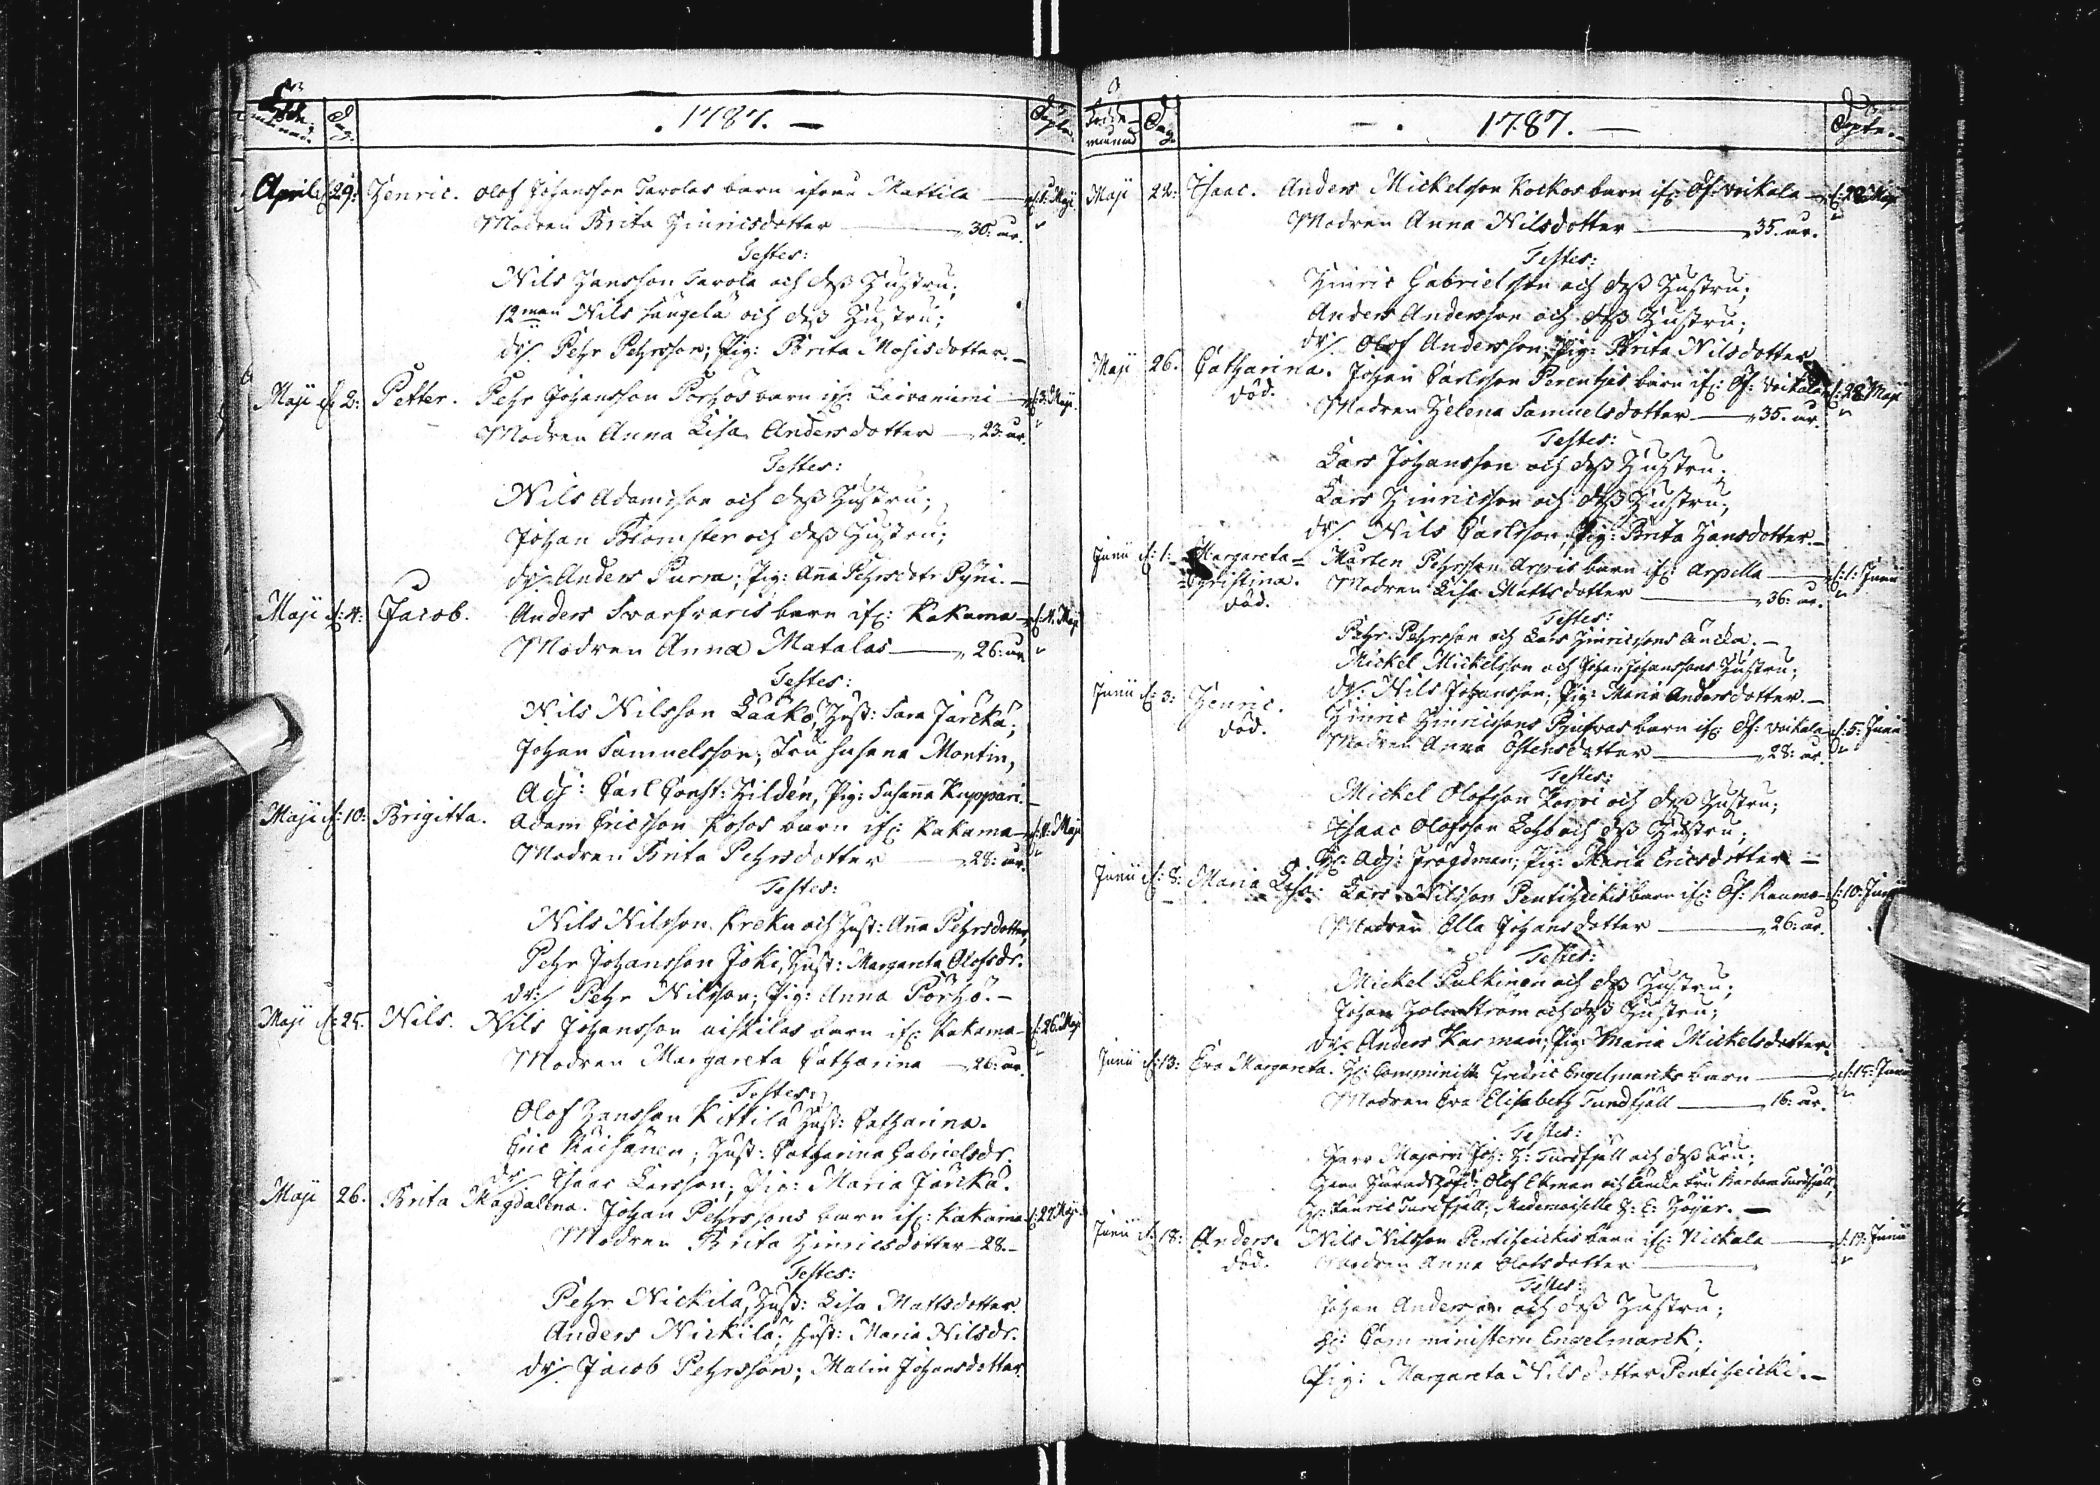 1787.
Dag.
April d: 29: Henric. Olof Johansson Tarolas barn ifrån Mattila
Modren Brita Hinricsdotter 30. år.
Testes:
Nils Hansson Tarola och dess Hustru;
12man Nils och dess Hustru;
dr. Pehr Pehrsson; Pig: Brita Mosisdotter.
Maji d: 2: Petter. Pehr Johansson Porhos barn ifr: Laivaniemi d: 3. Maji
Modren Anna Lisa Andersdotter 23. år.
Testes:
Nils Adamsson och dess Hustru;
Johan Blomster och dess Hustru;
dr. Anders Purra; Pig: Aña Pehrsdotr Pyni.
Maji d: 4: Jacob. Anders Svarfvaris barn ifr: Kakama d: 4. Maji
Modren Anna Matalas 26: år
Testes:
Nils Nilsson Lååko, Hust: Sara Jarckä;
Johan Samuelsson; Fru Susana Montin,
Adj: Carl Const: Hildén, Pig: Susaña Kuppari.
Maji d: 10: Brigitta. Adam Ericsson Kosos barn ifr: Kakama Maji
Modren Brita Pehrsdotter 28: år.
Testes:
Nils Nilsson Kreku och Hust: Aña Pehrsdotter,
Pehr Johansson Joki, Hust: Margareta Olofsdr.
dr: Pehr Nilsson; Pig: Anna Pörhö.
Maji d: 25. Nils. Nils Johansson barn ifr: Kakama d: 26. Maji
Modren Margareta Catharina 26: år.
Testes:
Olof Hansson Kittilä Hust: Catharina.
Eric Räisänen; Hust: Catharina Gabrielsdr.
dr. Isaac Larsson; Pig: Maria Jarckä.
Maji 26. Brita Magdalena. Johan Pehrssons barn ifr: Kakama d: 27 Maji
Modren Brita Hinricsdotter 28.
Testes:
Pehr Nickilä, Hust: Lisa Mattsdotter.
Anders Nickilä; Hust: Maria Nilsdr.
dr. Jacob Pehrsson; Malin Johansdotter.
Födelse-
månad Dag 1787. Dopte.
Maji 22: Isaac. Anders Mickelsson Kockos barn ifr: Öf: Voikala d: 28 Maji
Modren Anna Nilsdotter 35. år.
Testes:
Hinric Gabrielsson och dess Hustru;
Anders Andersson och dess Hustru;
dr. Olof Andersson; Pig: Brita Nilsdotter
Maji 26. Catharina. Johan Carlsson barn ifr: Öf: Voikala d: 28 Maji
död. Modren Helena Samuelsdotter 35. år.
Testes:
Lars Johansson och dess Hustru;
Lars Hinricsson och dess Hustru,
dr. Nils Carlsson, Pig: Brita Hansdotter.
Junii d: 1: Margareta= Mårten Pehrsson Arpis barn ifr: Arpella d: 1: Junii
=Christina. Modren Lisa Mattsdotter 36: år.
död. Testes:
Pehr Pehrsson och Lars Hinricssons Äncka;
Mickel Mickelsson och Johan Johanssons Hustru;
dr: Nils Johansson; Pig: Maria Andersdotter.
Junii d: 3: Henric. Hinric Hinricssons barn ifr: Öf: Voikala d: 5: Junii
död. Modren Anna Östensdotter 28: år.
Testes:
Mickel Olofsson Korpi och dess Hustru;
Isaac Olofsson och dess Hustru;
Hr: Adj: Frågdman; Pig: Maria Ericsdotter
Junii d: 8: Maria Lisa. Lars Nilsson barn ifr: Öf: Raumo d: 10: Junii
Modren Ella Johansdotter 26: år.
Testes:
Mickel Pulkinen och dess Hustru;
Johan Holmström och dess Hustru;
dr. Anders Karman; Pig: Maria Mickelsdotter.
Junii d: 13: Eva Margareta. Hr: Comminist: Fredric Engelmarcks barn d: 15: Junii
Modren Eva Elisabeth Turdfjäll 16: år.
Testes:
Herr Majoren Joh: H: Turdfjäll och dess Fru;
Herr Olof Ekman och Fru Barbara Turdfjäll;
Hr Turdfjäll; Mademoiselle H: E: Höijer.
Junii d: 18: Anders. Nils Nilsson barn ifr: Nickala d: 19: Junii
död. Modren Anna Olofsdotter
Testes:
Johan Andersson och dess Hustru;
Hr: Comministern Engelmarck;
Pig: Margareta Nilsdotter Pentiheicki.